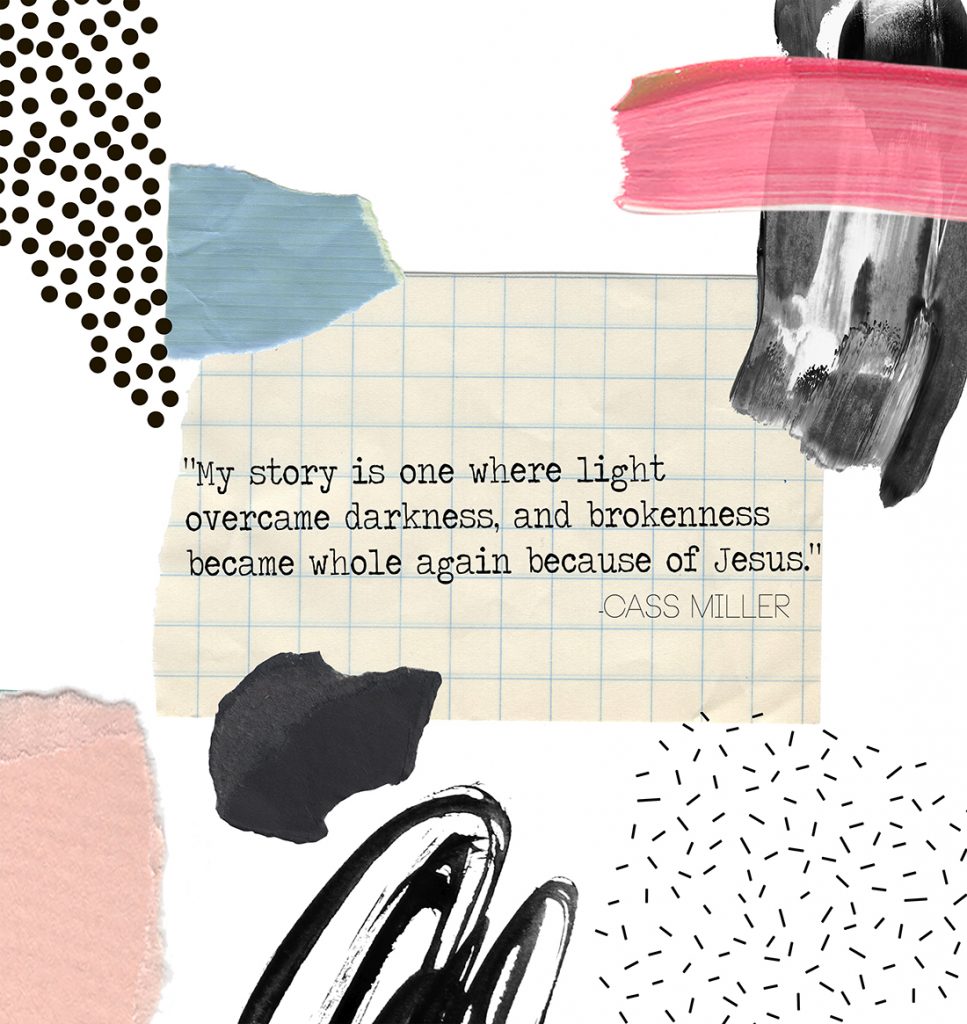 "My story is one where light
overcame darkness, and brokenness
became whole again because of Jesus."
-CASS MILLER